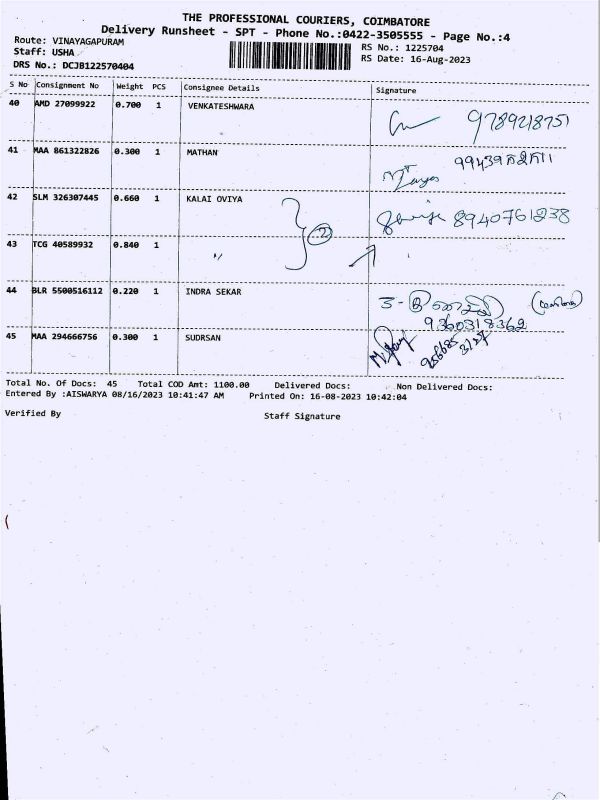 THE PROFESSIONAL COURIERS, COIMBATORE
Delivery Runsheet - SPT - Phone No.:0422-3505555 - Page No.:4
Route: VINAYAGAPURAM
RS No.: 1225704
Staff: USHA
RS Date: 16-Aug-2023
DRS No.: DCJB122570404
S No Consignment No Weight PCS Consignee Details Signature
40 AMD 27099922 0.700 1 VENKATESHWARA 9789218751
41 MAA 861322826 0.300 1 MATHAN
42 SLM 326307445 0.660 1 KALAI OVIYA 8940761238
2
43 TCG 40589932 0.840 1 〃
44 BLR 5500516112 0.220 1 INDRA SEKAR
9360318362
45 MAA 294666756 0.300 1 SUDRSAN
Total No. Of Docs: 45 Total COD Amt: 1100.00 Delivered Docs: Non Delivered Docs:
Entered By :AISWARYA 08/16/2023 10:41:47 AM Printed On: 16-08-2023 10:42:04
Verified By Staff Signature